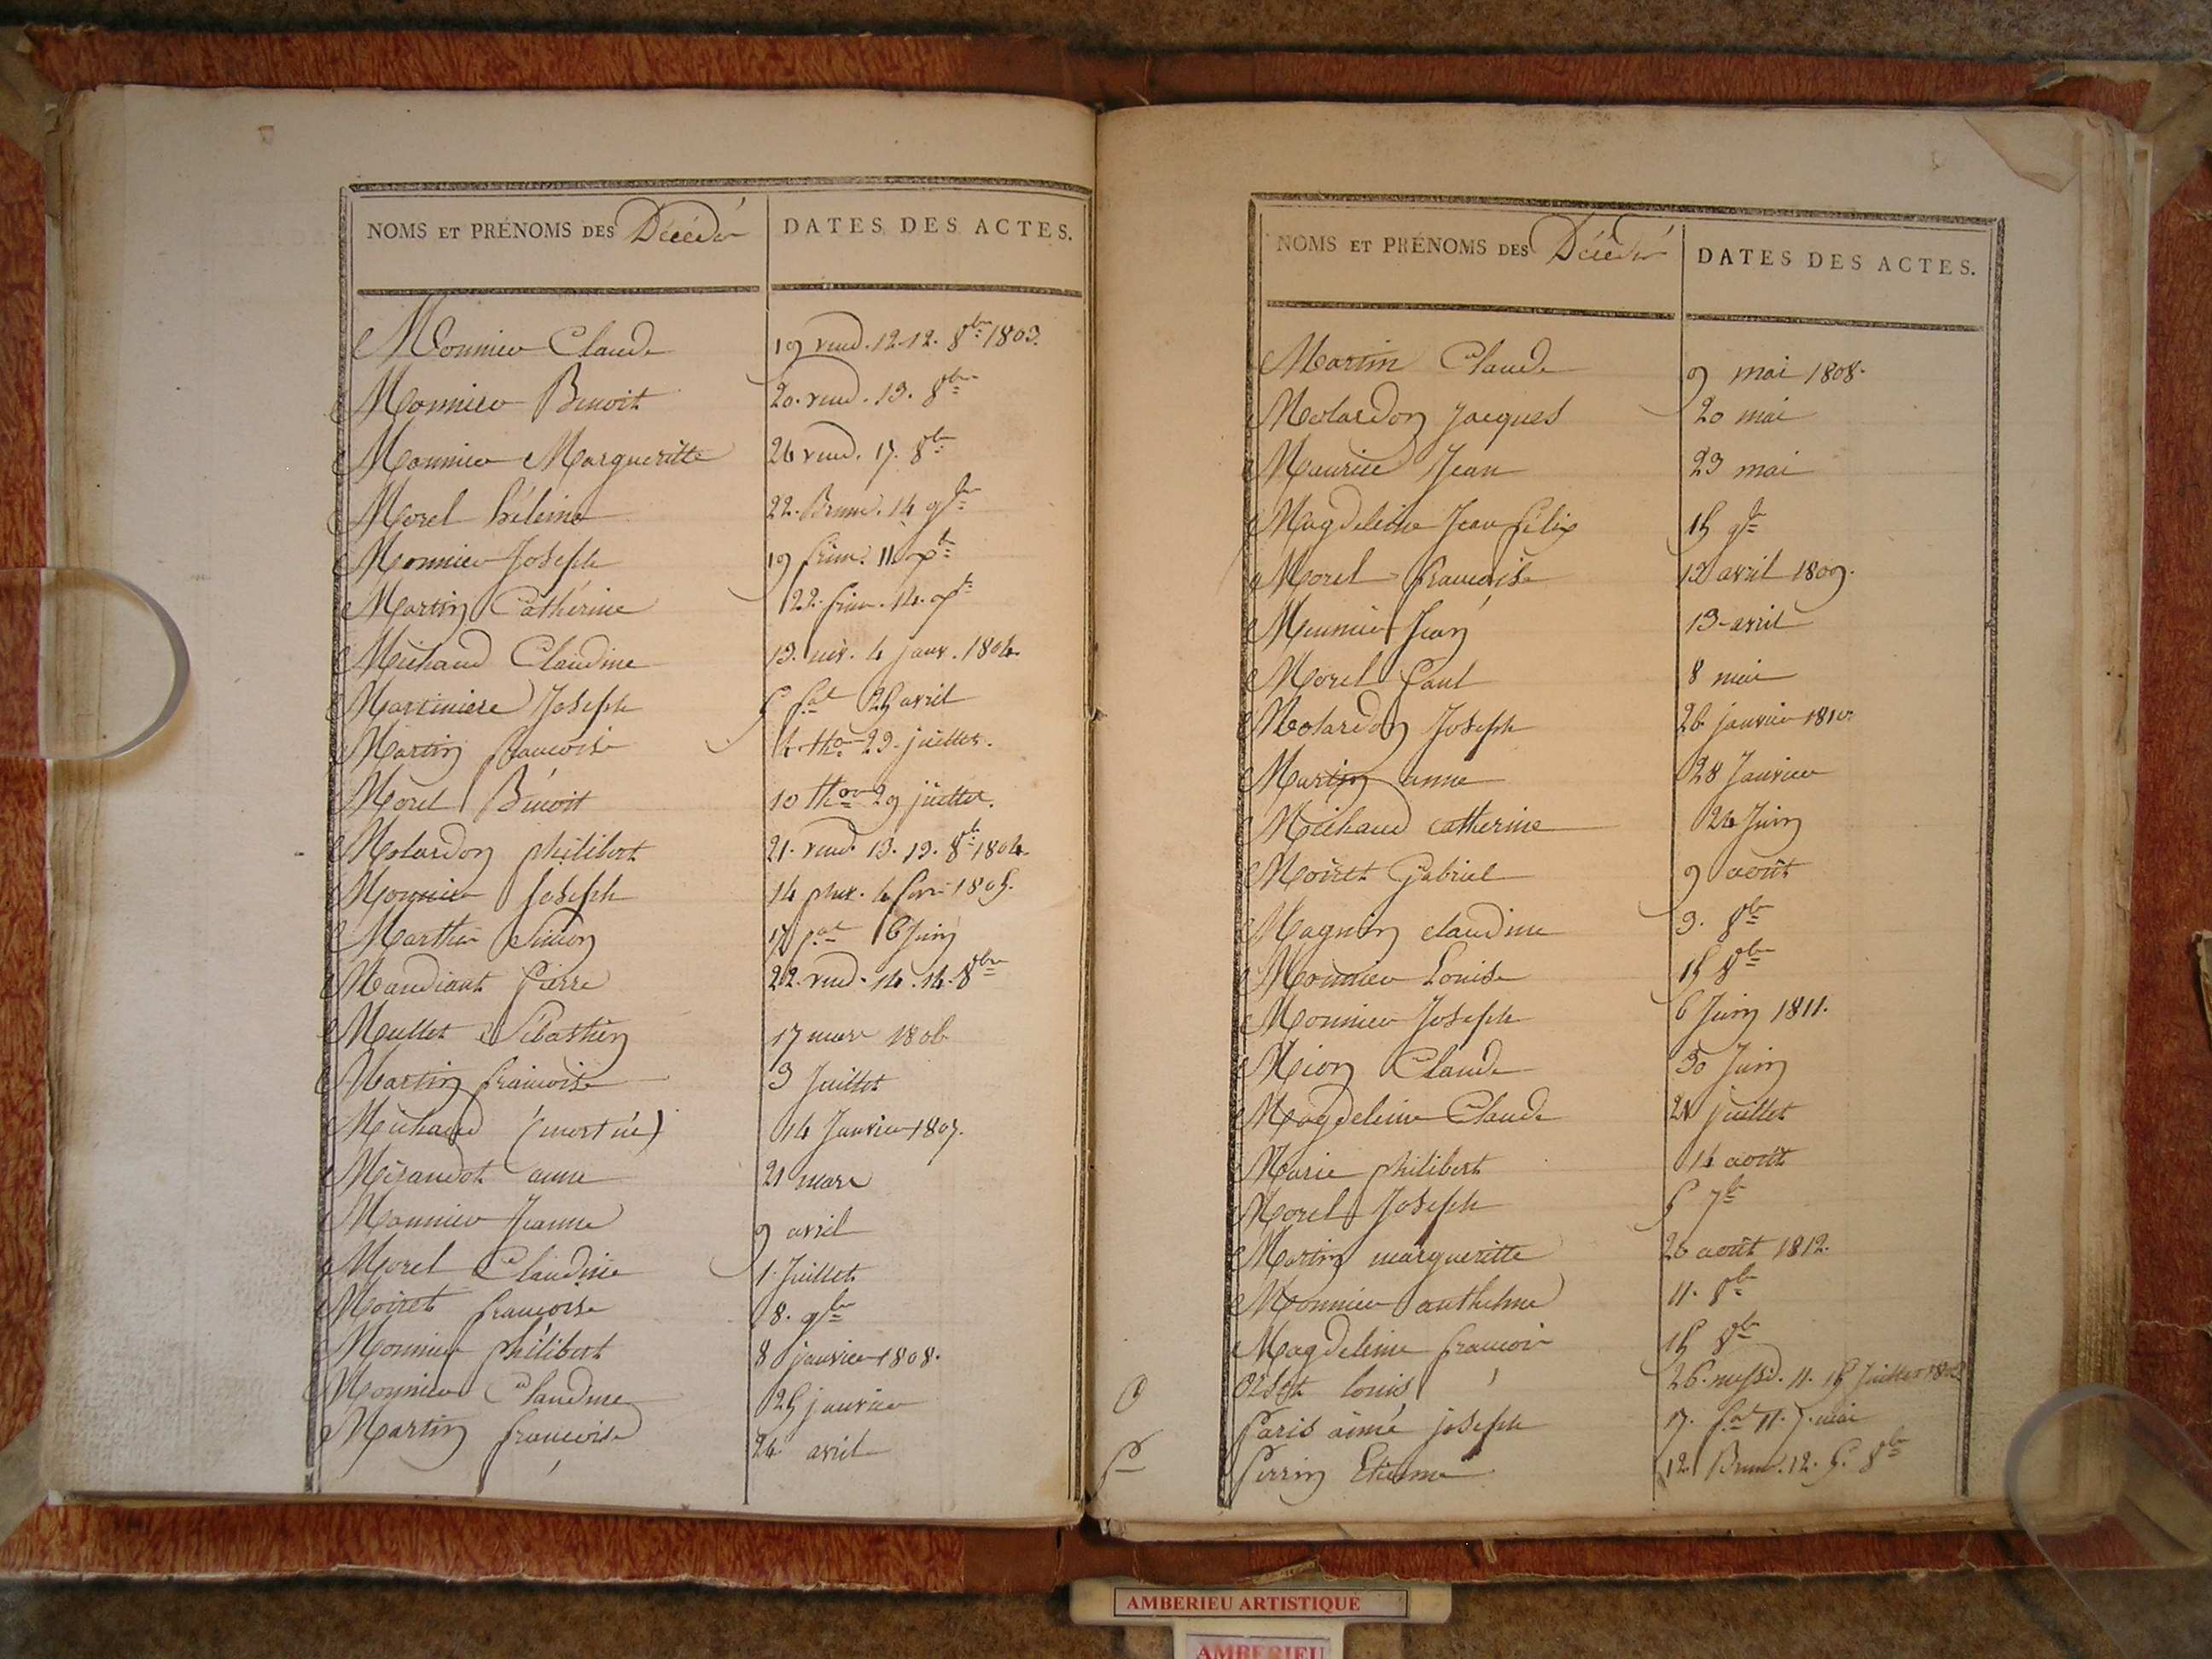 NOMS ET PRÉNOMS DES Décédés DATES DES ACTES.
Monnier Claude 19 vend. 12. 12. 8bre 1803.
Monnier Benoit 20. vend. 13. 8bre
Monnier Margueritte 26 vend. 17. 8bre
Morel héleine 22. Brum. 14 9bre
Monnier Joseph 19 frim. 11 Xbre
Martin Catherine 22. frim. 14. Xbre
Michaud Claudine 13. niv. 4 janv. 1804.
Martiniere Joseph 5 f.al 25 avril
Martin francoise 4. ther 23. juillet.
Morel Bénoit 10 ther 29 juillet.
Molardon philibert 21. vend. 13. 13. 8bre 1804.
Monnier Joseph 14 pluv. 4 fevr. 1805.
Marthe Simon 17 p.al 6 Juin
Mandiant Pierre 22. vend. 14. 14. 8bre
Mullet Sébastien 17 mars 1806
Martin francoise 3 Juillet
Michaud (mort né) 14 Janvier 1807.
Mérandot anne 21 mars
Monnier Jeanne 9 avril
Morel Claudine 1. Juillet
Moiret francoise 8. 9bre
Monnier philibert 8 janvier 1808.
Monnier Claudine 25 janvier
Martin francoise 24 avril
NOMS ET PRÉNOMS DES Décédés DATES DES ACTES.
Martin Claude 9 mai 1808.
Molardon Jacques 20 mai
Maurice Jean 23 mai
Magdeleine Jean félix 15 9bre
Morel francoise 12 avril 1809.
Meunier Jean 13 avril
Morel Paul 8 mai
Molardon Joseph 26 janvier 1810
Martin anne 28 Janvier
Michaud catherine 24 Juin
Moiret Gabriel 9 août
Magnin claudine 3. 8bre
Monnier Louise 15 8bre
Monnier Joseph 6 Juin 1811.
Mion Claude 30 Juin
Magdeleine Claude 21 juillet
Marie philibert 14 août
Morel Joseph 5 7bre
Martin margueritte 20 août 1812.
Monnier anthelme 11. 8bre
Magdeleine francois 15 8bre
O Orset louis 26. messid. 11. 15 Juillet 1803
Paris aimé joseph 17. f.al 11. 7. mai
P Perrin Etienne 12 Brum. 12. 5. 8bre
AMBERIEU ARTISTIQUE
AMBERIEU